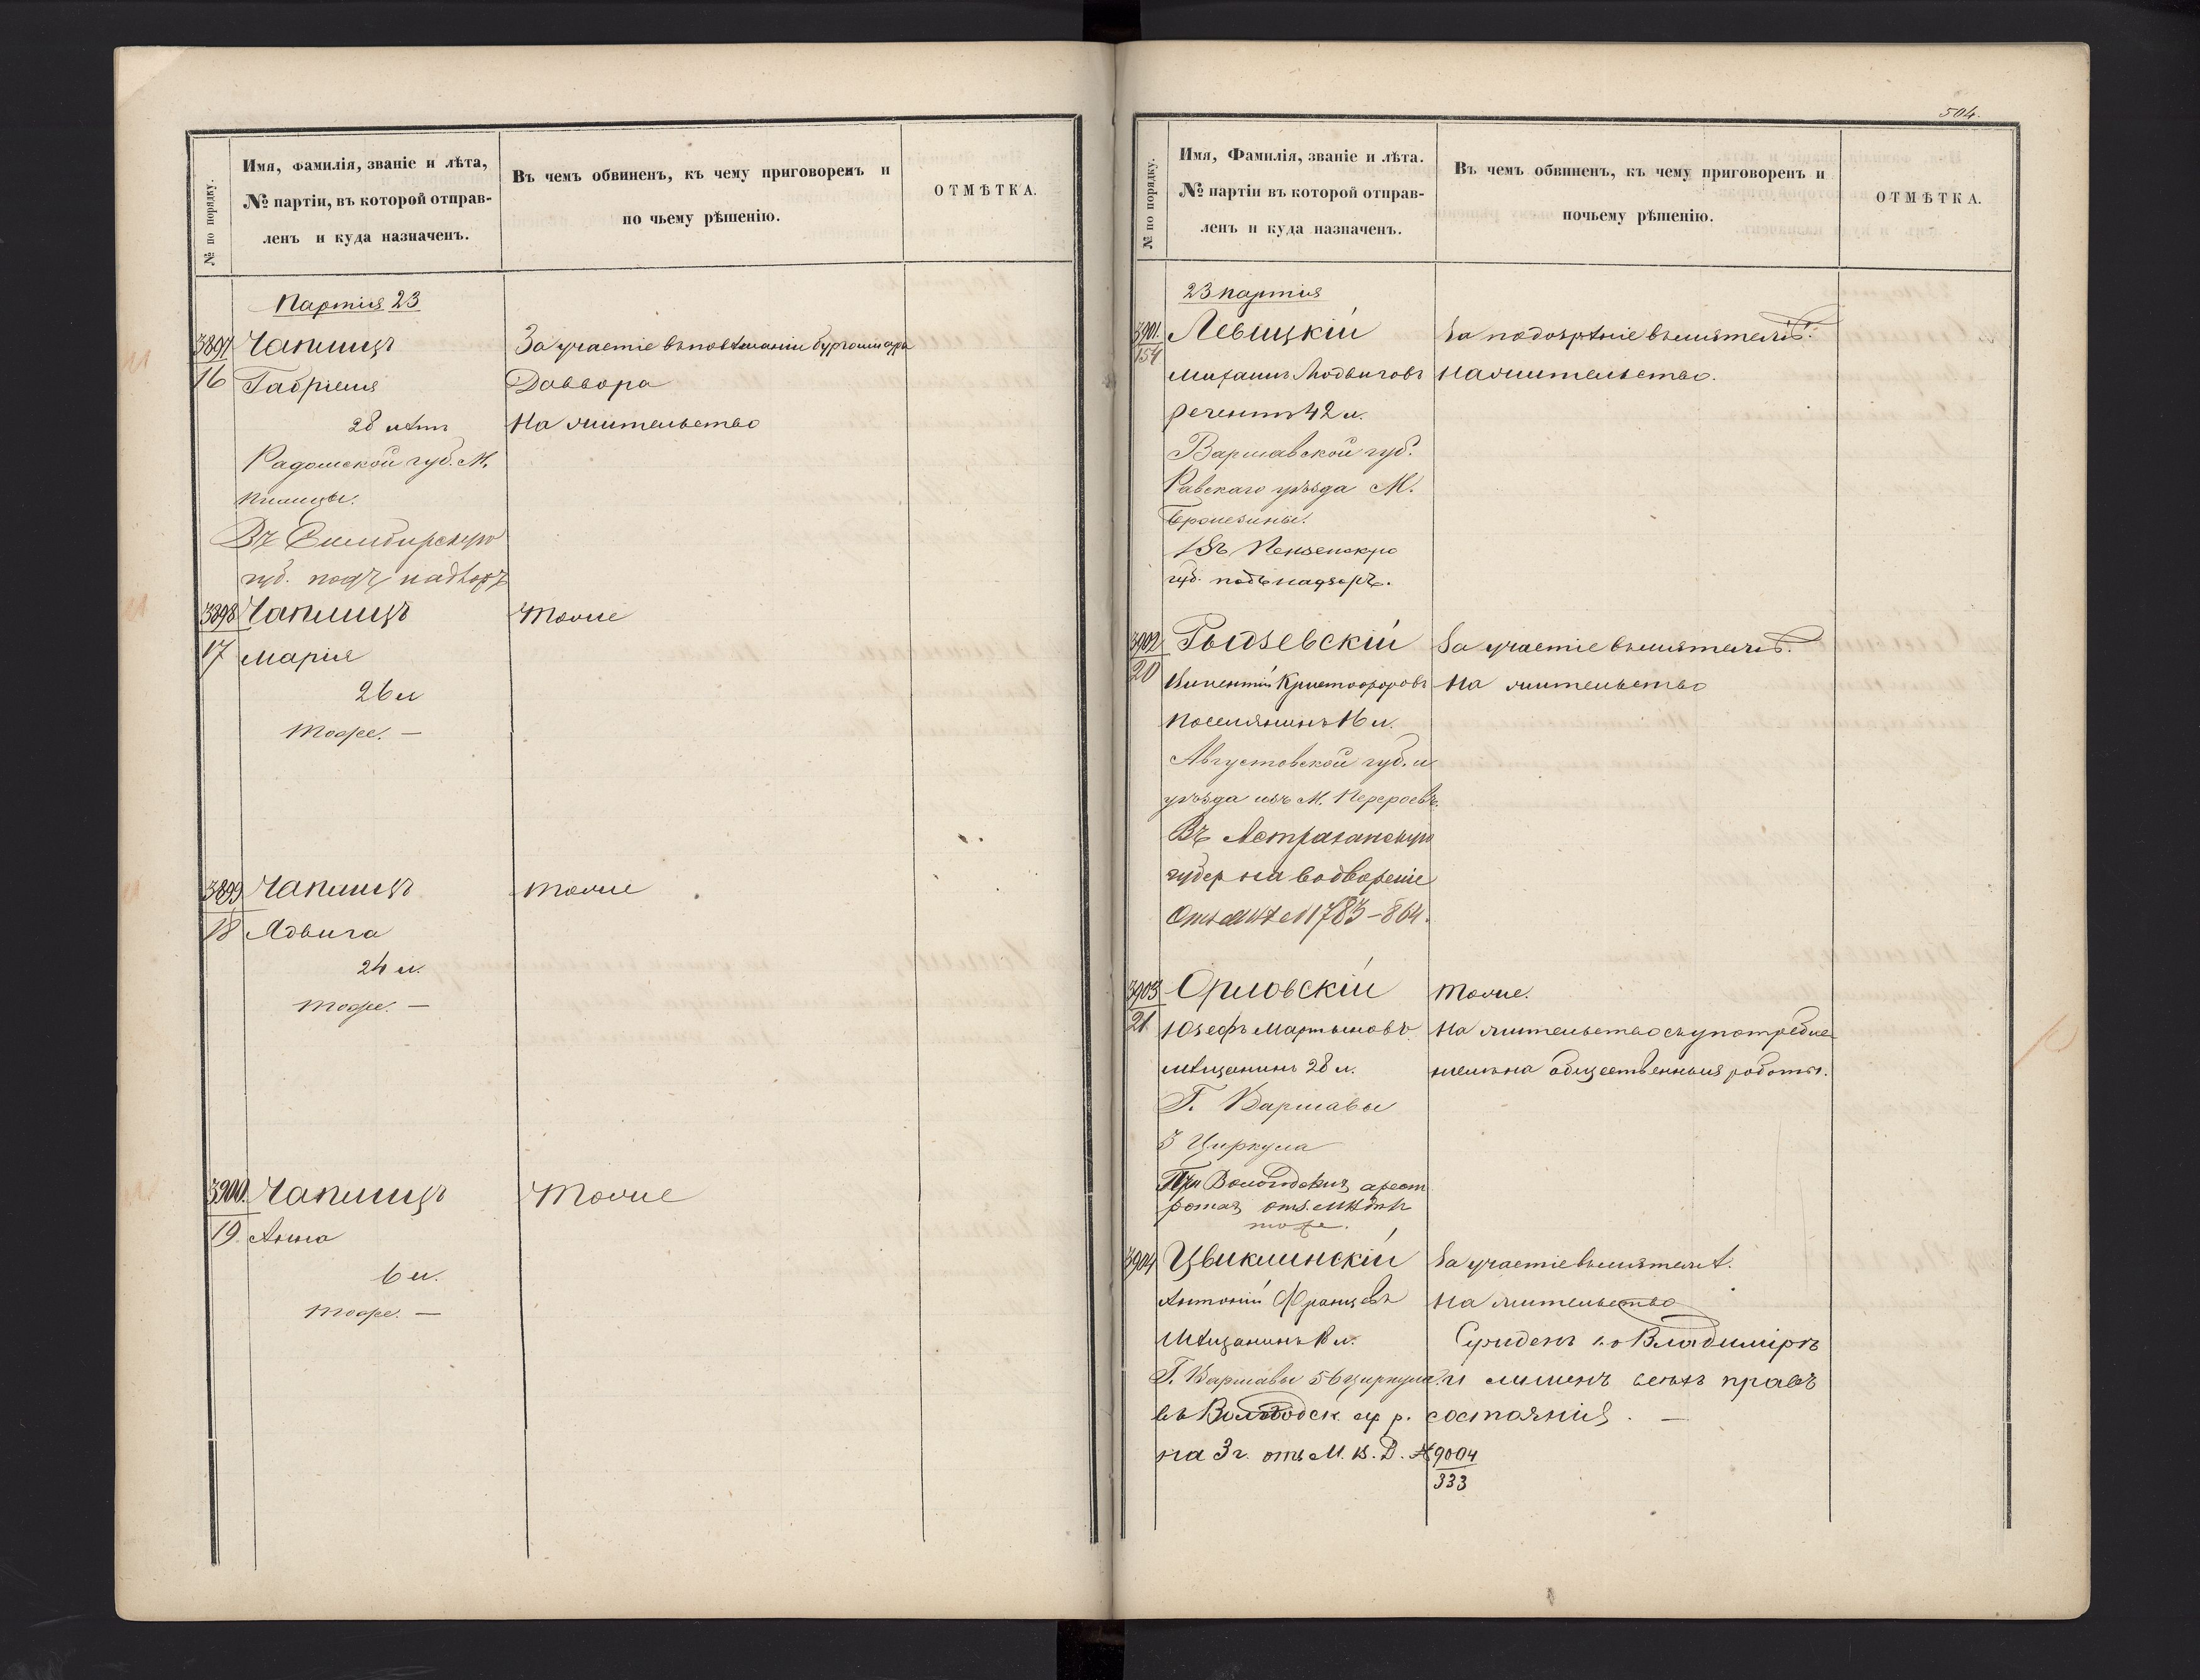 № по порядку.
Имя, фамилія, званіе и лѣта,
№ партіи, въ которой отправ-
ленъ и куда назначенъ.
Въ чемъ обвиненъ, къ чему приговоренъ и
по чьему рѣшенію.
ОТМѢТКА.
Партія 23
3897
16
Чаплицъ
Габріеля
28 лѣтъ
Радомской губ. М.
Пилицы.
Въ Симбирскую
губ. подъ надзоръ
За участіе въ повѣшаніи бургомистра
На жительство
3898
17
Чаплицъ
Марія
26 л
тоже. —
Тоже
3899
18
Чаплицъ
Ядвига
24 л.
тоже. —
тоже
3900
19
Чаплицъ
Анна
6 л.
тоже. —
Тоже
504.
№ по порядку.
Имя, Фамилія, званіе и лѣта.
№ партіи въ которой отправ-
ленъ и куда назначенъ.
Въ чемъ обвиненъ, къ чему приговоренъ и
почьему рѣшенію.
ОТМѢТКА.
23 партія
3901.
154
Левицкій
Михаилъ Людвиговъ
регентъ 42 л.
Варшавской губ.
Равскаго уѣзда М.
Въ Пензенскую
губ. подъ надзоръ.
За подозрѣніе въ мятежѣ.
На жительство.
3902
20
Гыдзевскій
Викентій Кристофоровъ
поселянинъ 16 л.
Августовской губ. и
уѣзда изъ М.
Въ Астраханскую
губер на водвореніе
1783-864.
За участіе въ мятежѣ.
На жительство
3903
21
Орловскій
Юзефъ Мартыновъ
мѣщанинъ 28 л.
Г. Варшавы
3 Циркула
При арест
ротах
тоже.
Тоже.
На жительство съ употребле
ніемъ на общественныя работы.
3904
Цвиклинскій
Антоній Францевъ
Мѣщанинъ 18 л.
Г. Варшавы 5 б циркула.
въ р.
на 3 г. отъ М. В. Д. № 9004
333
За участіе въ мятежѣ.
На жительство
Сужденъ во Владимірѣ
и лишенъ всѣхъ правъ
состоянія. —